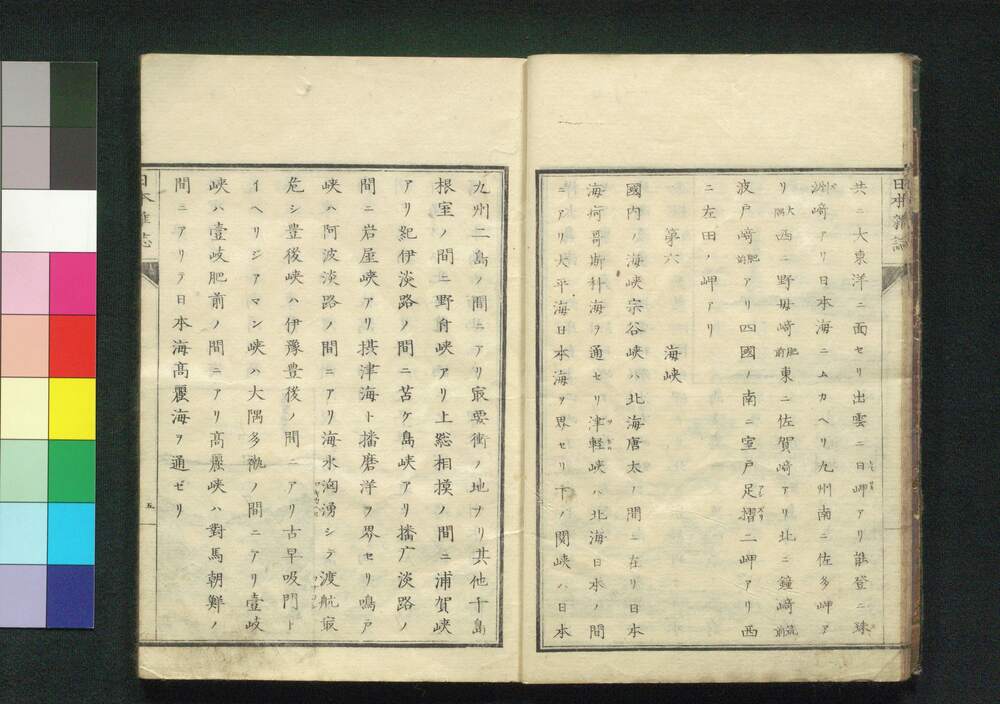 日本雜誌
共ニ大東洋ニ面セリ出雲ニ日岬アリ能登ニ珠
洲崎アリ日本海ニムカヘリ九州南ニ佐多岬ア
リ大隅西ニ野母崎肥前東ニ佐賀崎アリ北ニ鐘崎筑前
波戸崎肥前アリ四國ノ南ニ室戸足摺二岬アリ西
ニ左田ノ岬アリ
第六 海峡
國内ノ海峡宗谷峡ハ北海唐太ノ間ニ在リ日本
海阿哥斯科海ヲ通セリ津軽峡ハ北海日本ノ間
ニアリ大平海日本海ヲ界セリ下ノ関峡ハ日本
九州二島ノ間ニアリ㝡要衝ノ地ナリ其他千島
根室ノ間ニ野舟峡アリ上総相摸ノ間ニ浦賀峡
アリ紀伊淡路ノ間ニ苫ケ島峡アリ播广淡路ノ
間ニ岩屋峡アリ摂津海ト播磨洋ヲ界セリ鳴戸
峡ハ阿波淡路ノ間ニアリ海水洶湧シテ渡航㝡
危シ豊後峡ハ伊豫豊後ノ間ニアリ古早吸門ト
イヘリジアマン峡ハ大隅多䄇ノ間ニアリ壹岐
峡ハ壹岐肥前ノ間ニアリ高麗峡ハ對馬朝鮮ノ
間ニアリテ日本海高麗海ヲ通ゼリ
日本雜誌
五